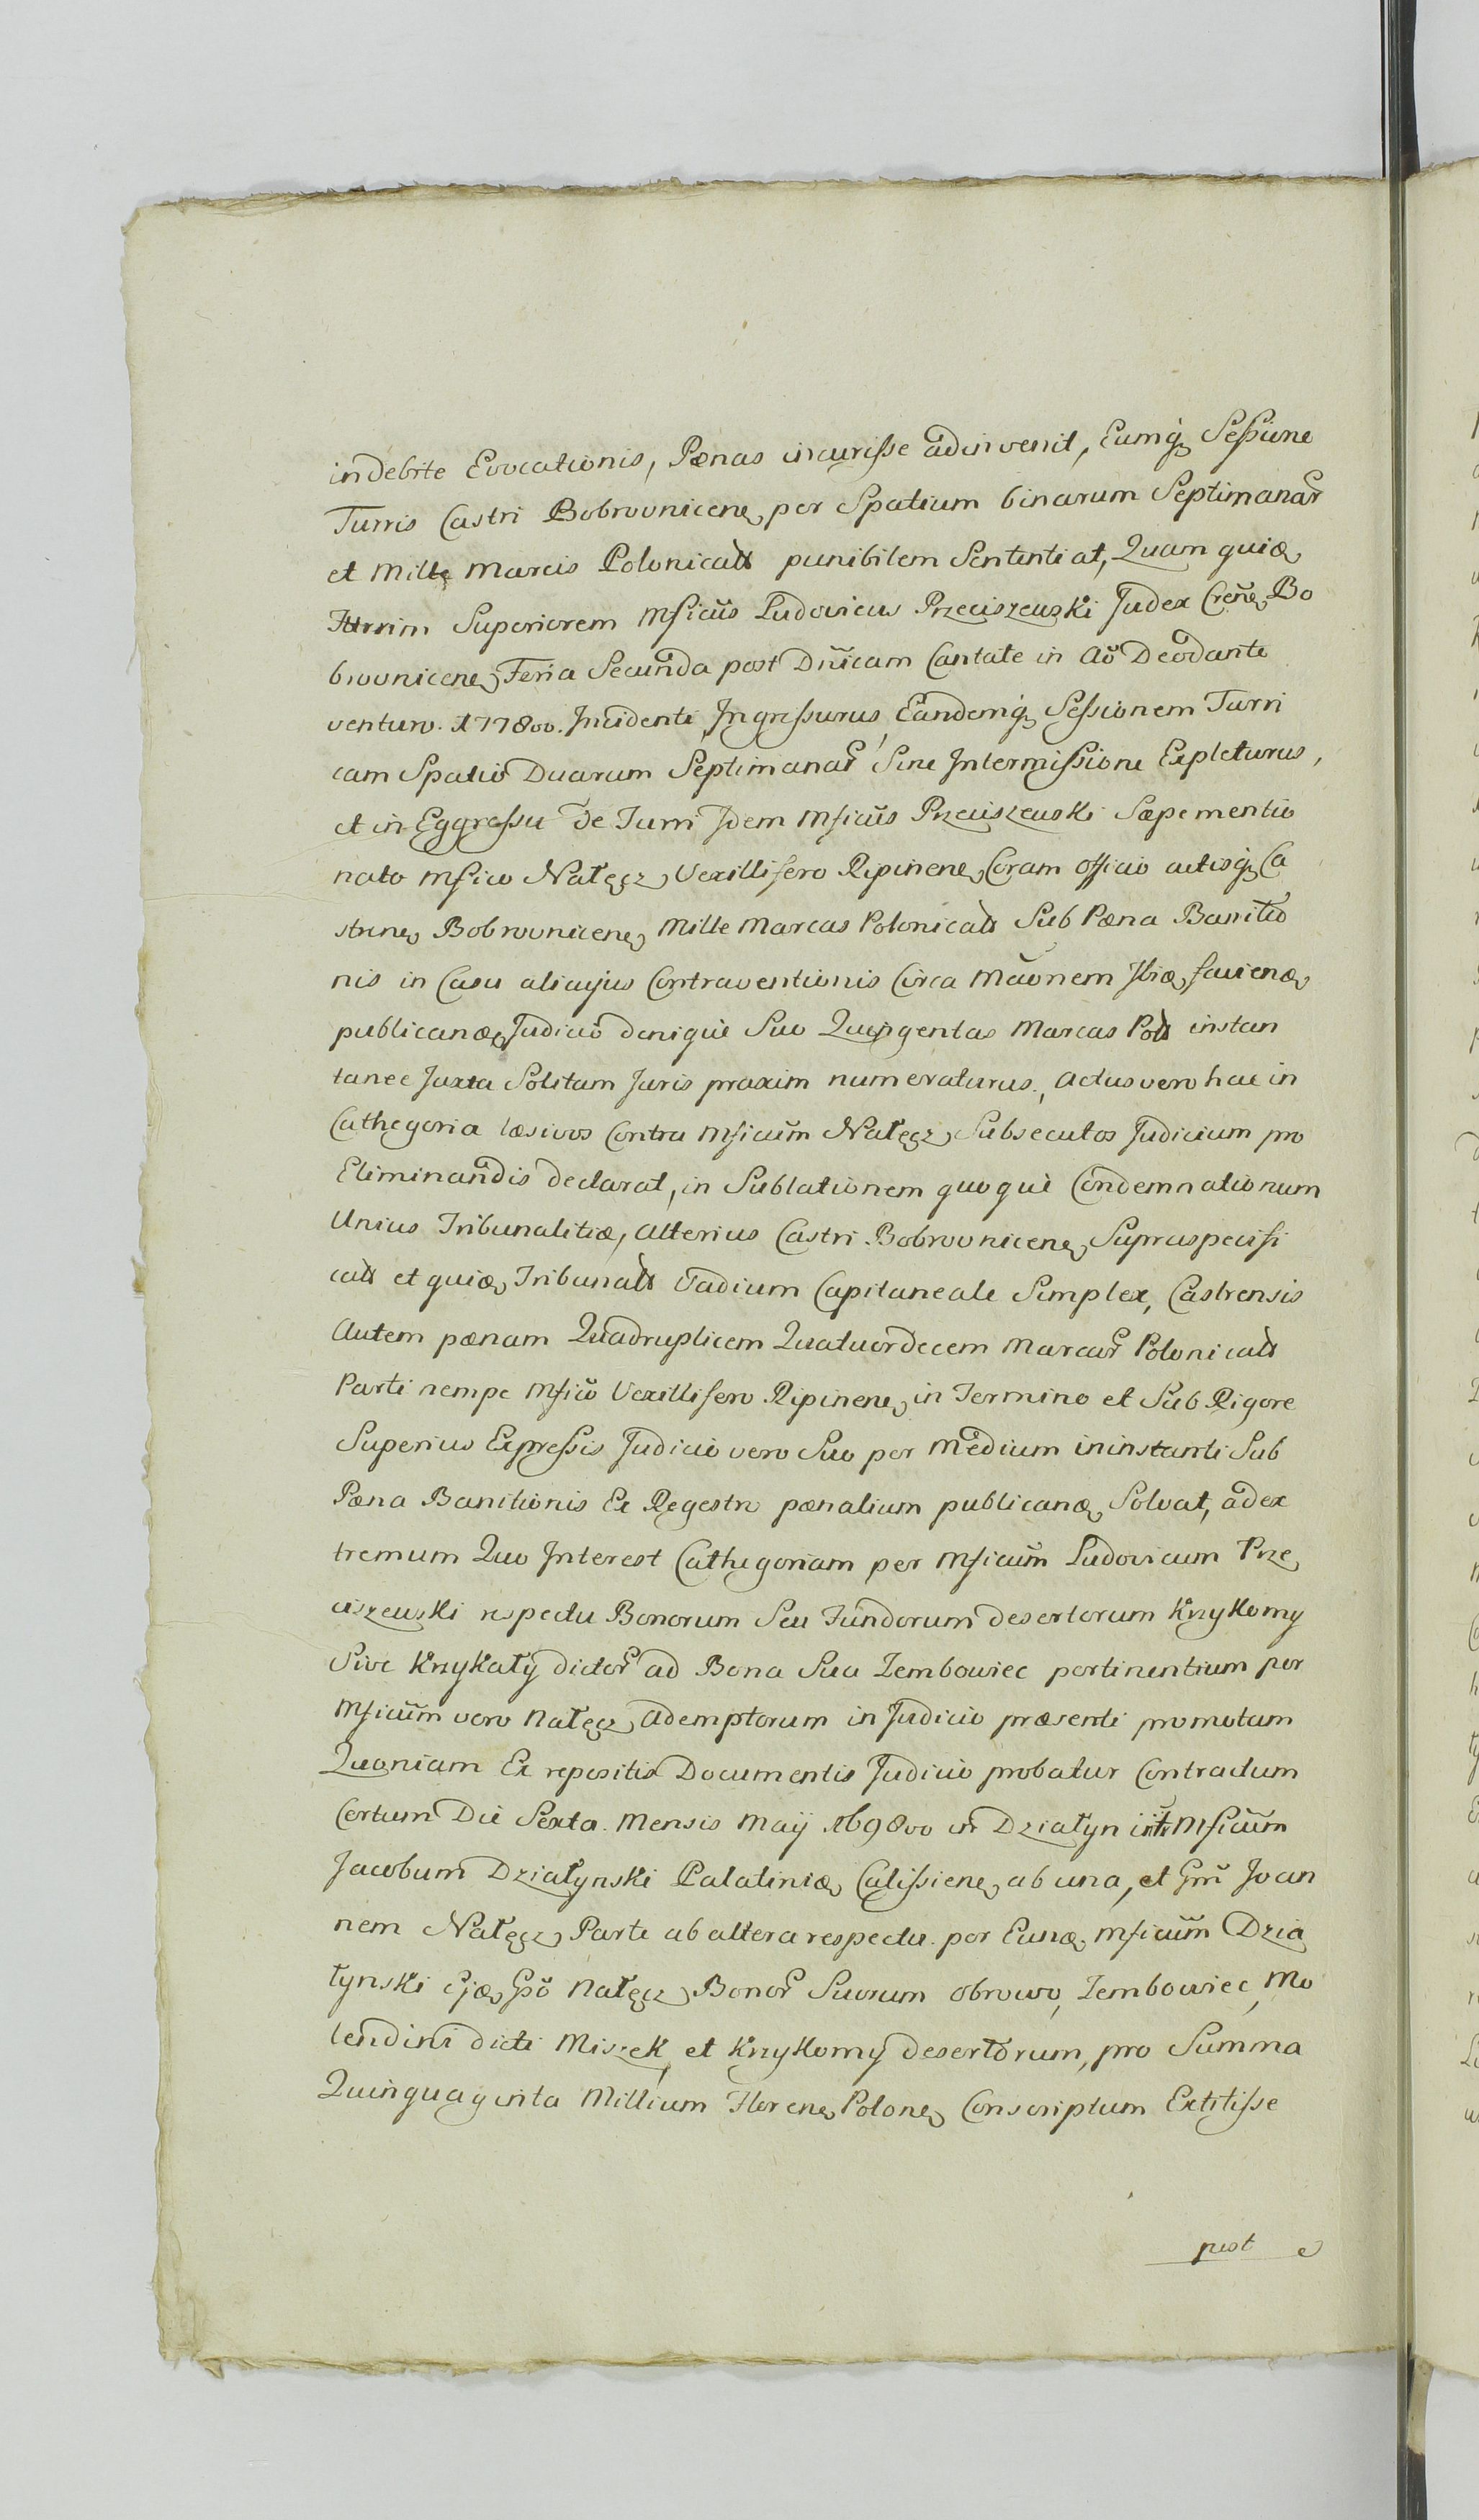 indebite Evocationis, Pœnas incurisse adinvenit, Eumq́ Sessione
Turris Castri Bobrovnicen̄ per Spatium binarum Septimanar̄
et Mille Marcis Polonicałł punibilem Sententiat, Quam quidē
Turrim Superiorem Mficūs Ludovicus Przeciszewski Judex Creñ Bo
brovnicen̄ Feria Secunda post Dn̄icam Cantate in Aō Deodante
venturo 1778vo Incidenti, Ingressurus, Eandemq́ Sessionem Turri
cam Spatio Duarum Septimanar̄ Sine Intermissione Expleturus,
et in Eggressu de Turri Idem Mficūs Przeciszewski Sæpe mentio
nato Mfico Nałęcz Vexillifero Ripinen̄ Coram Officio actisq́ Ca
stren̄ Bobrovnicen̄ Mille Marcas Polonicałł Sub Pœna Banitio
nis in Casu alicujus Contraventionis Circa Māonem Ibidē faciendē
publicandē Judicio denique Suo Quingentas Marcas Połł instan
tanee Juxta Solitam Juris praxim numeraturus., Actus vero hac in
Cathegoria læsivos Contra Mficūm Nałęcz Subsecutos Judicium pro
Eliminandis declarat, in Sublationem quoque Condemnationum
Unius Tribunalitiæ, Alterius Castri Bobrovnicen̄ Supraspecifi
całł et quidē Tribunałł Vadium Capitaneale Simplex, Castrensis
Autem pœnam Quadruplicem Quatuordecem Marcar̄ Polonicałł
Parti nempe Mficō Vexillifero Ripinen̄ in Termino et Sub Rigore
Superius Expressis Judicio vero Suo per Medium in instanti Sub
Pœna Banitionis Ex Regestro pœnalium publicandē Solvat, ad ex
tremum Quo Interest Cathegoriam per Mficūm Ludovicum Prze
ciszewski respectu Bonorum Seu Fundorum desertorum Krzykomy
Sive Krzykały dictor̄ ad Bona Sua Zembowiec pertinentium per
Mficūm vero Nałęcz Ademptorum in Judicio præsenti promotam
Quoniam Ex repositis Documentis Judicio probatur Contractum
Certum Die Sexta Mensis Maij 1698vo in Działyn int̄ Mficūm
Jacobum Działynski Palatinidē Calissien̄ ab una, et Gn̄m Joan
nem Nałęcz Parte ab altera respectu per Eundē Mficūm Dzia
łynski Ejdē Gsō Nałęcz Bonor̄ Suorum Obrowo, Zembowiec, Mo
lendini dicti Miszek, et Krzykomy desertorum, pro Summa
Quinquaginta Millium Floren̄ Polon̄ Conscriptum Extitisse
post